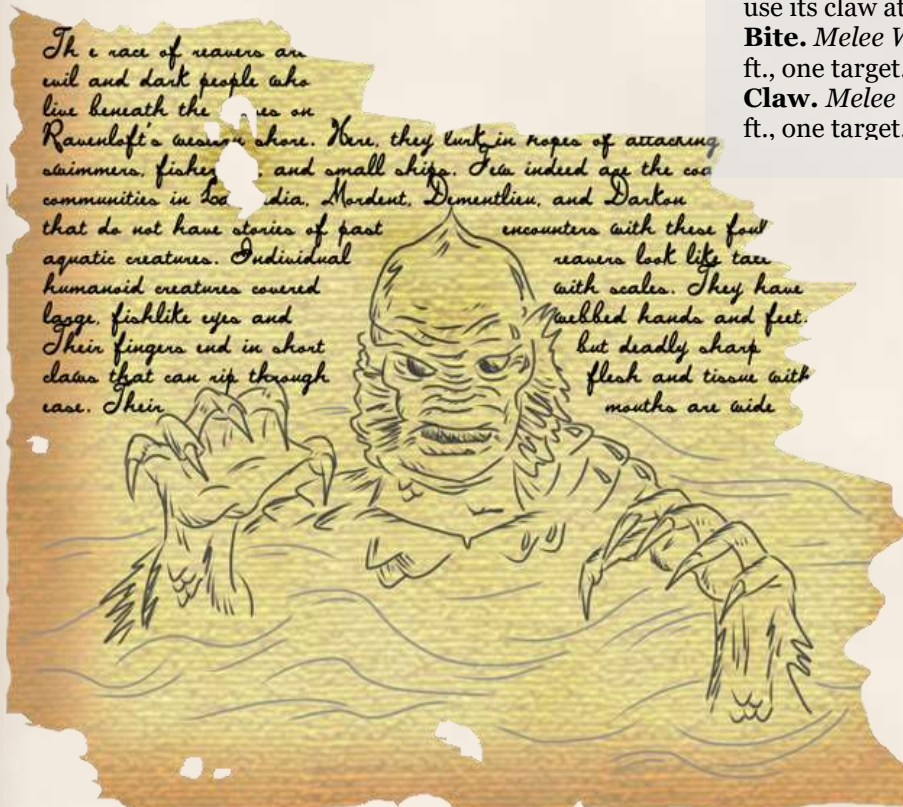 use its claw at
Bite. Melee W
ft., one target.
Claw. Melee
ft., one target.
The race of reavers are
evil and dark people who
live beneath the on
Ravenloft's western shore. Here, they lurk in hopes of attacking
swimmers, fisher and small ships. Few indeed are the coa
communities in dia, Mordent, Dementlieu, and Darkon
that do not have stories of past encounters with these foul
aquatic creatures. Individual reavers look like
humanoid creatures covered with scales. They have
large, fishlike eyes and webbed hands and feet.
Their fingers end in short but deadly sharp
claws that can rip through flesh and tissue with
ease. Their mouths are wide